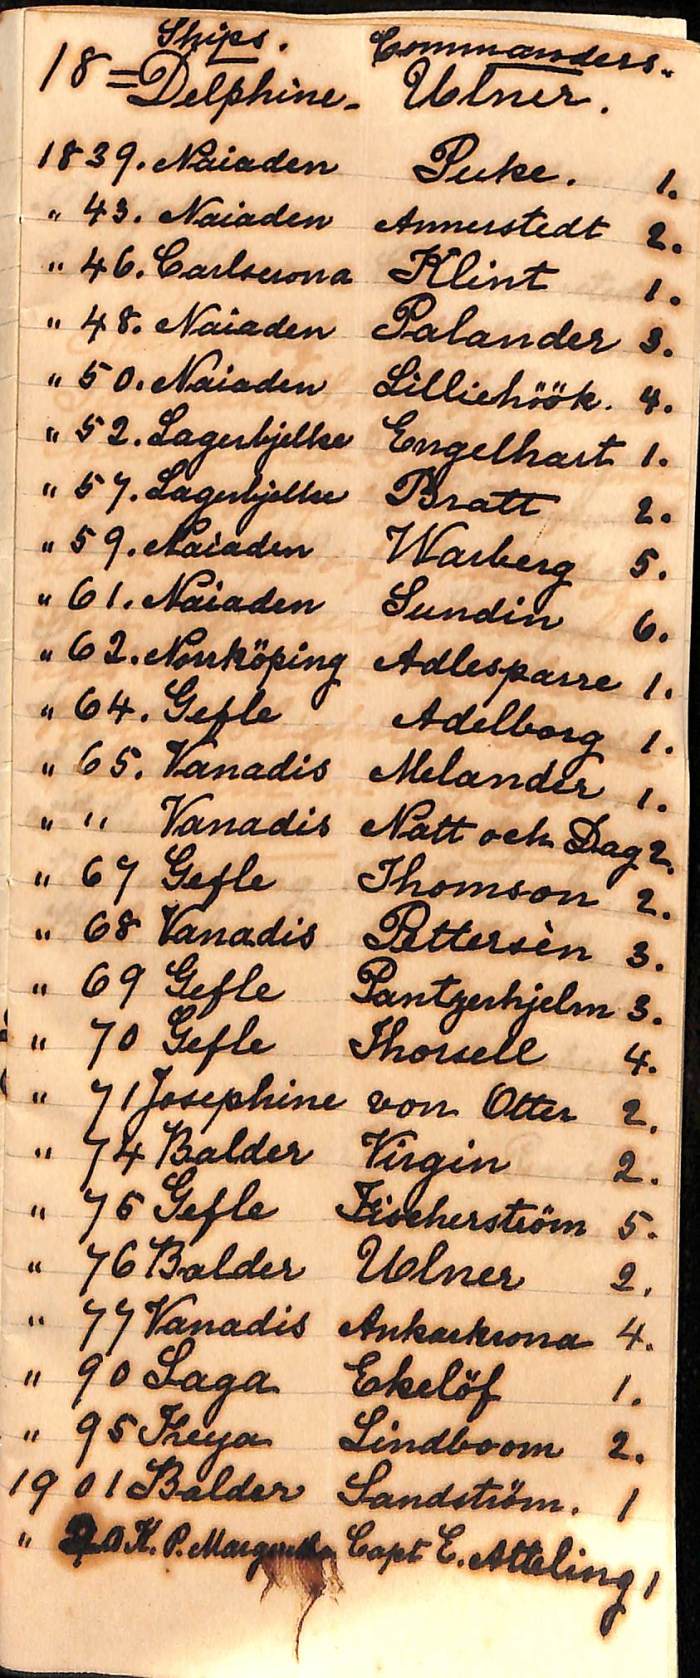 Ships. Commanders.
18= Delphine- Ulner.
1839. Naiaden Puke. 1.
" 43. Naiaden Annerstedt 2.
" 46. Carlscrona Klint 1.
" 48. Naiaden Palander 3.
" 50. Naiaden Lilliehöök. 4.
" 52. Lagerbjelke Engelhart 1.
" 57. Lagerbjelke Bratt 2.
" 59. Naiaden Warberg 5.
" 61. Naiaden Sundin 6.
" 62. Norrköping Adlesparre 1.
" 64. Gefle Adelborg 1.
" 65. Vanadis Melander 1.
" " Vanadis Natt och Dag 2.
" 67 Gefle Thomson 2.
" 68 Vanadis Pettersèn 3.
" 69 Gefle Pantzerhjelm 3.
" 70 Gefle Thorsell 4.
" 71 Josephine von Otter 2.
" 74 Balder Virgin 2.
" 75 Gefle Fischerström 5.
" 76 Balder Ulner 2.
" 77 Vanadis Ankarkrona 4.
" 90 Saga Ekelöf 1.
" 95 Freya Lindboom 2.
1901 Balder Sandström. 1
" K. P. Margareta Capt E. Atteling 1